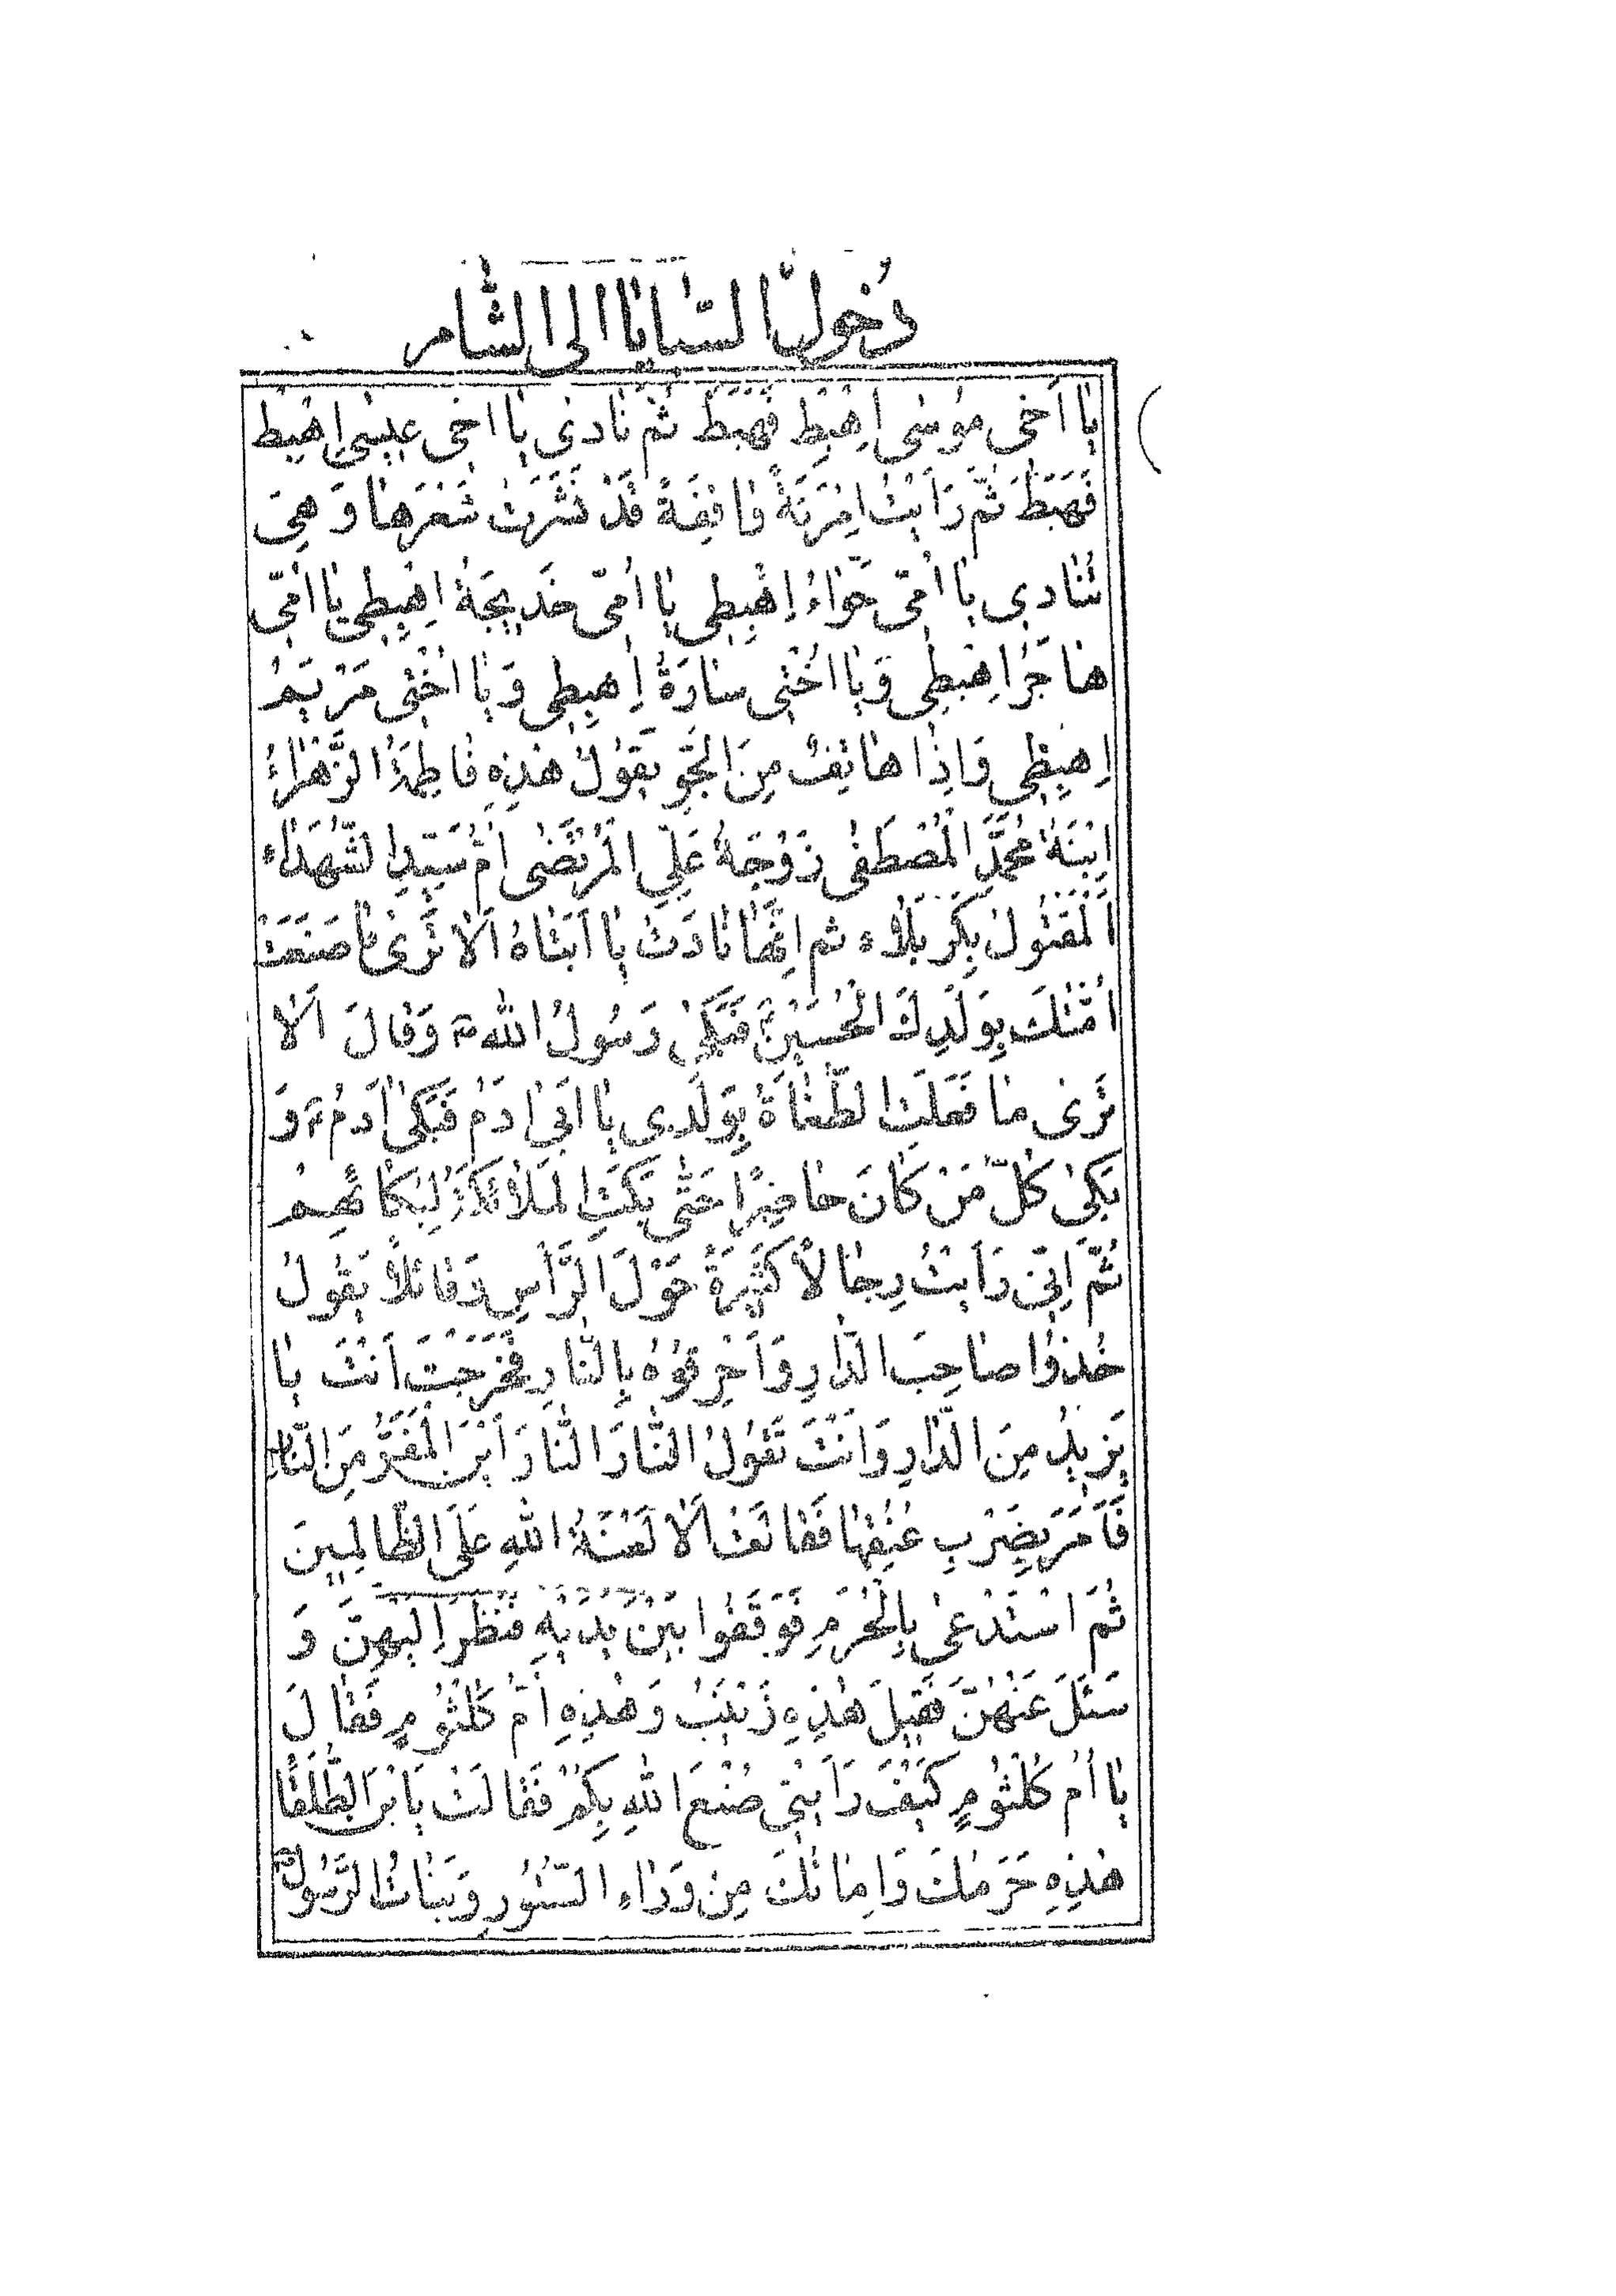 دُخُولُ السَّبايا الى الشّام
يا اَخى مُوسٰى اِهْبِطْ فَهَبَطَ ثُمَّ نادى يا اَخى عيسٰى اِهْبِطْ
فَهَبَطَ ثُمَّ رَاَيْتُ امْرَئَةً واقِفَةً قَدْ نَشَرَتْ شَعْرَها وَ هِىَ
تُنادى يا اُمّى حَوّاءُ اِهْبِطى يا اُمّى خَديجَةُ اِهْبِطى يا اُمّى
هاجَرُ اِهْبِطى وَ يا اُخْتى سارَةُ اِهْبِطى وَ يا اُخْتى مَرْيَمُ
اِهْبِطى وَ اِذا هاتِفٌ مِنَ الْجَوِّ يَقُولُ هٰذِهِ فاطِمَةُ الزَّهْراءُ
اِبْنَةُ مُحَمَّدٍ الْمُصْطَفٰى زَوْجَةُ عَلِىٍّ الْمُرْتَضٰى اُمُّ سَيِّدِ الشُّهَداءِ
اَلْمَقْتُولِ بِكَرْبَلاءِ ثم اِنَّها نادَتْ يا اَبَتاهُ اَلا تَرىٰ ما صَنَعَتْ
اُمَّتُكَ بِوَلَدِكَ الْحُسَيْنِ فَبَكىٰ رَسُولُ اللهِ وَ قالَ اَلا
تَرىٰ ما فَعَلَتِ الطُّغاةُ بِوَلَدى يا اَبى ادَمُ فَبَكىٰ ادَمُ وَ
بَكىٰ كُلُّ مَنْ كانَ حاضِرًا حَتّٰى بَكَتِ الْمَلائِكَةُ لِبُكائِهِمْ
ثُمَّ اِنّى رَاَيْتُ رِجالاً كَثيرَةً حَوْلَ الرَّأْسِ وَ قائِلاً يَقُولُ
خُذُوا صاحِبَ الدّارِ وَ اَحْرِقُوهُ بِالنّارِ فَخَرَجْتَ اَنْتَ يا
يَزيدُ مِنَ الدّارِ وَ اَنْتَ تَقُولُ النّارَ النّارَ اَيْنَ الْمَفَرُّ مِنَ النّارِ
فَاَمَرَ بِضَرْبِ عُنُقِها فَقالَتْ اَلا لَعْنَةُ اللهِ عَلَى الظّالِمينَ
ثُمَّ اسْتَدْعىٰ بِالْحُرَمِ فَوَقَفُوا بَيْنَ يَدَيْهِ فَنَظَرَ اِلَيْهِنَّ وَ
سَئَلَ عَنْهُنَّ فَقيلَ هٰذِهِ زَيْنَبُ وَ هٰذِهِ اُمُّ كُلْثُومٍ فَقالَ
يا اُمَّ كُلْثُومٍ كَيْفَ رَاَيْتى صُنْعَ اللهِ بِكُمْ فَقالَتْ يَا بْنَ الطُّلَقاءِ
هٰذِهِ حَرَمُكَ وَ اِمائُكَ مِنْ وَراءِ السُّتُورِ وَ بَناتُ الرَّسُولِ